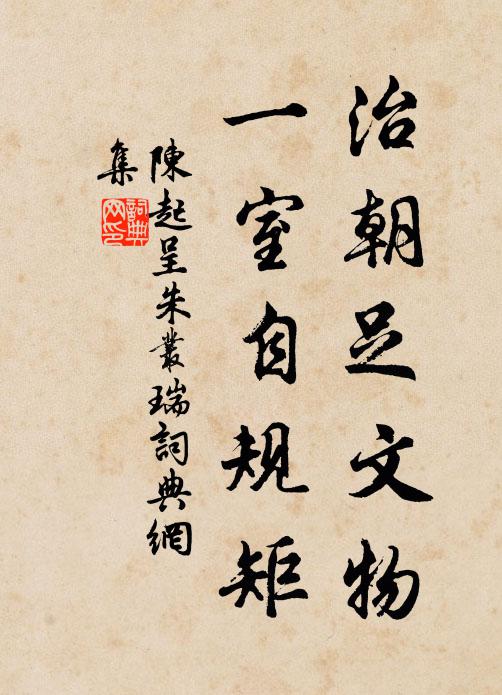 治朝足文物
一室自規矩
陳起呈朱叢瑞詞典網
集
詞典
网印